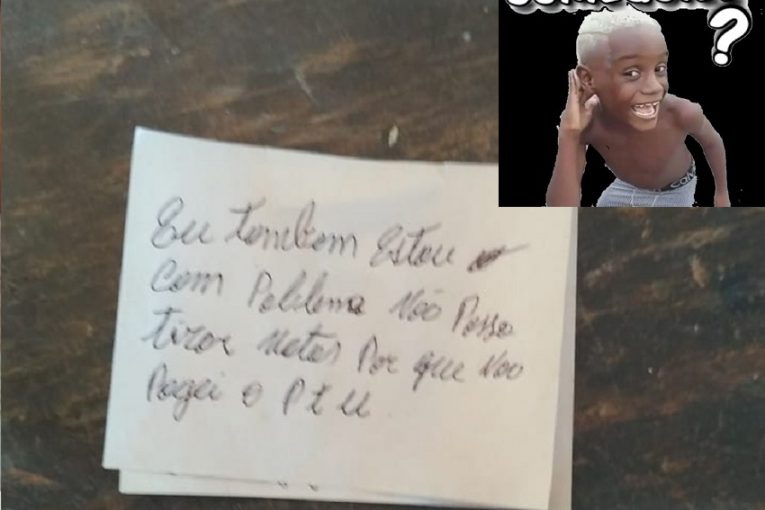 ?
Eu tombom Estou
com Poblema Não Posso
tiror Notas Por que Noo
Pagei o P t u